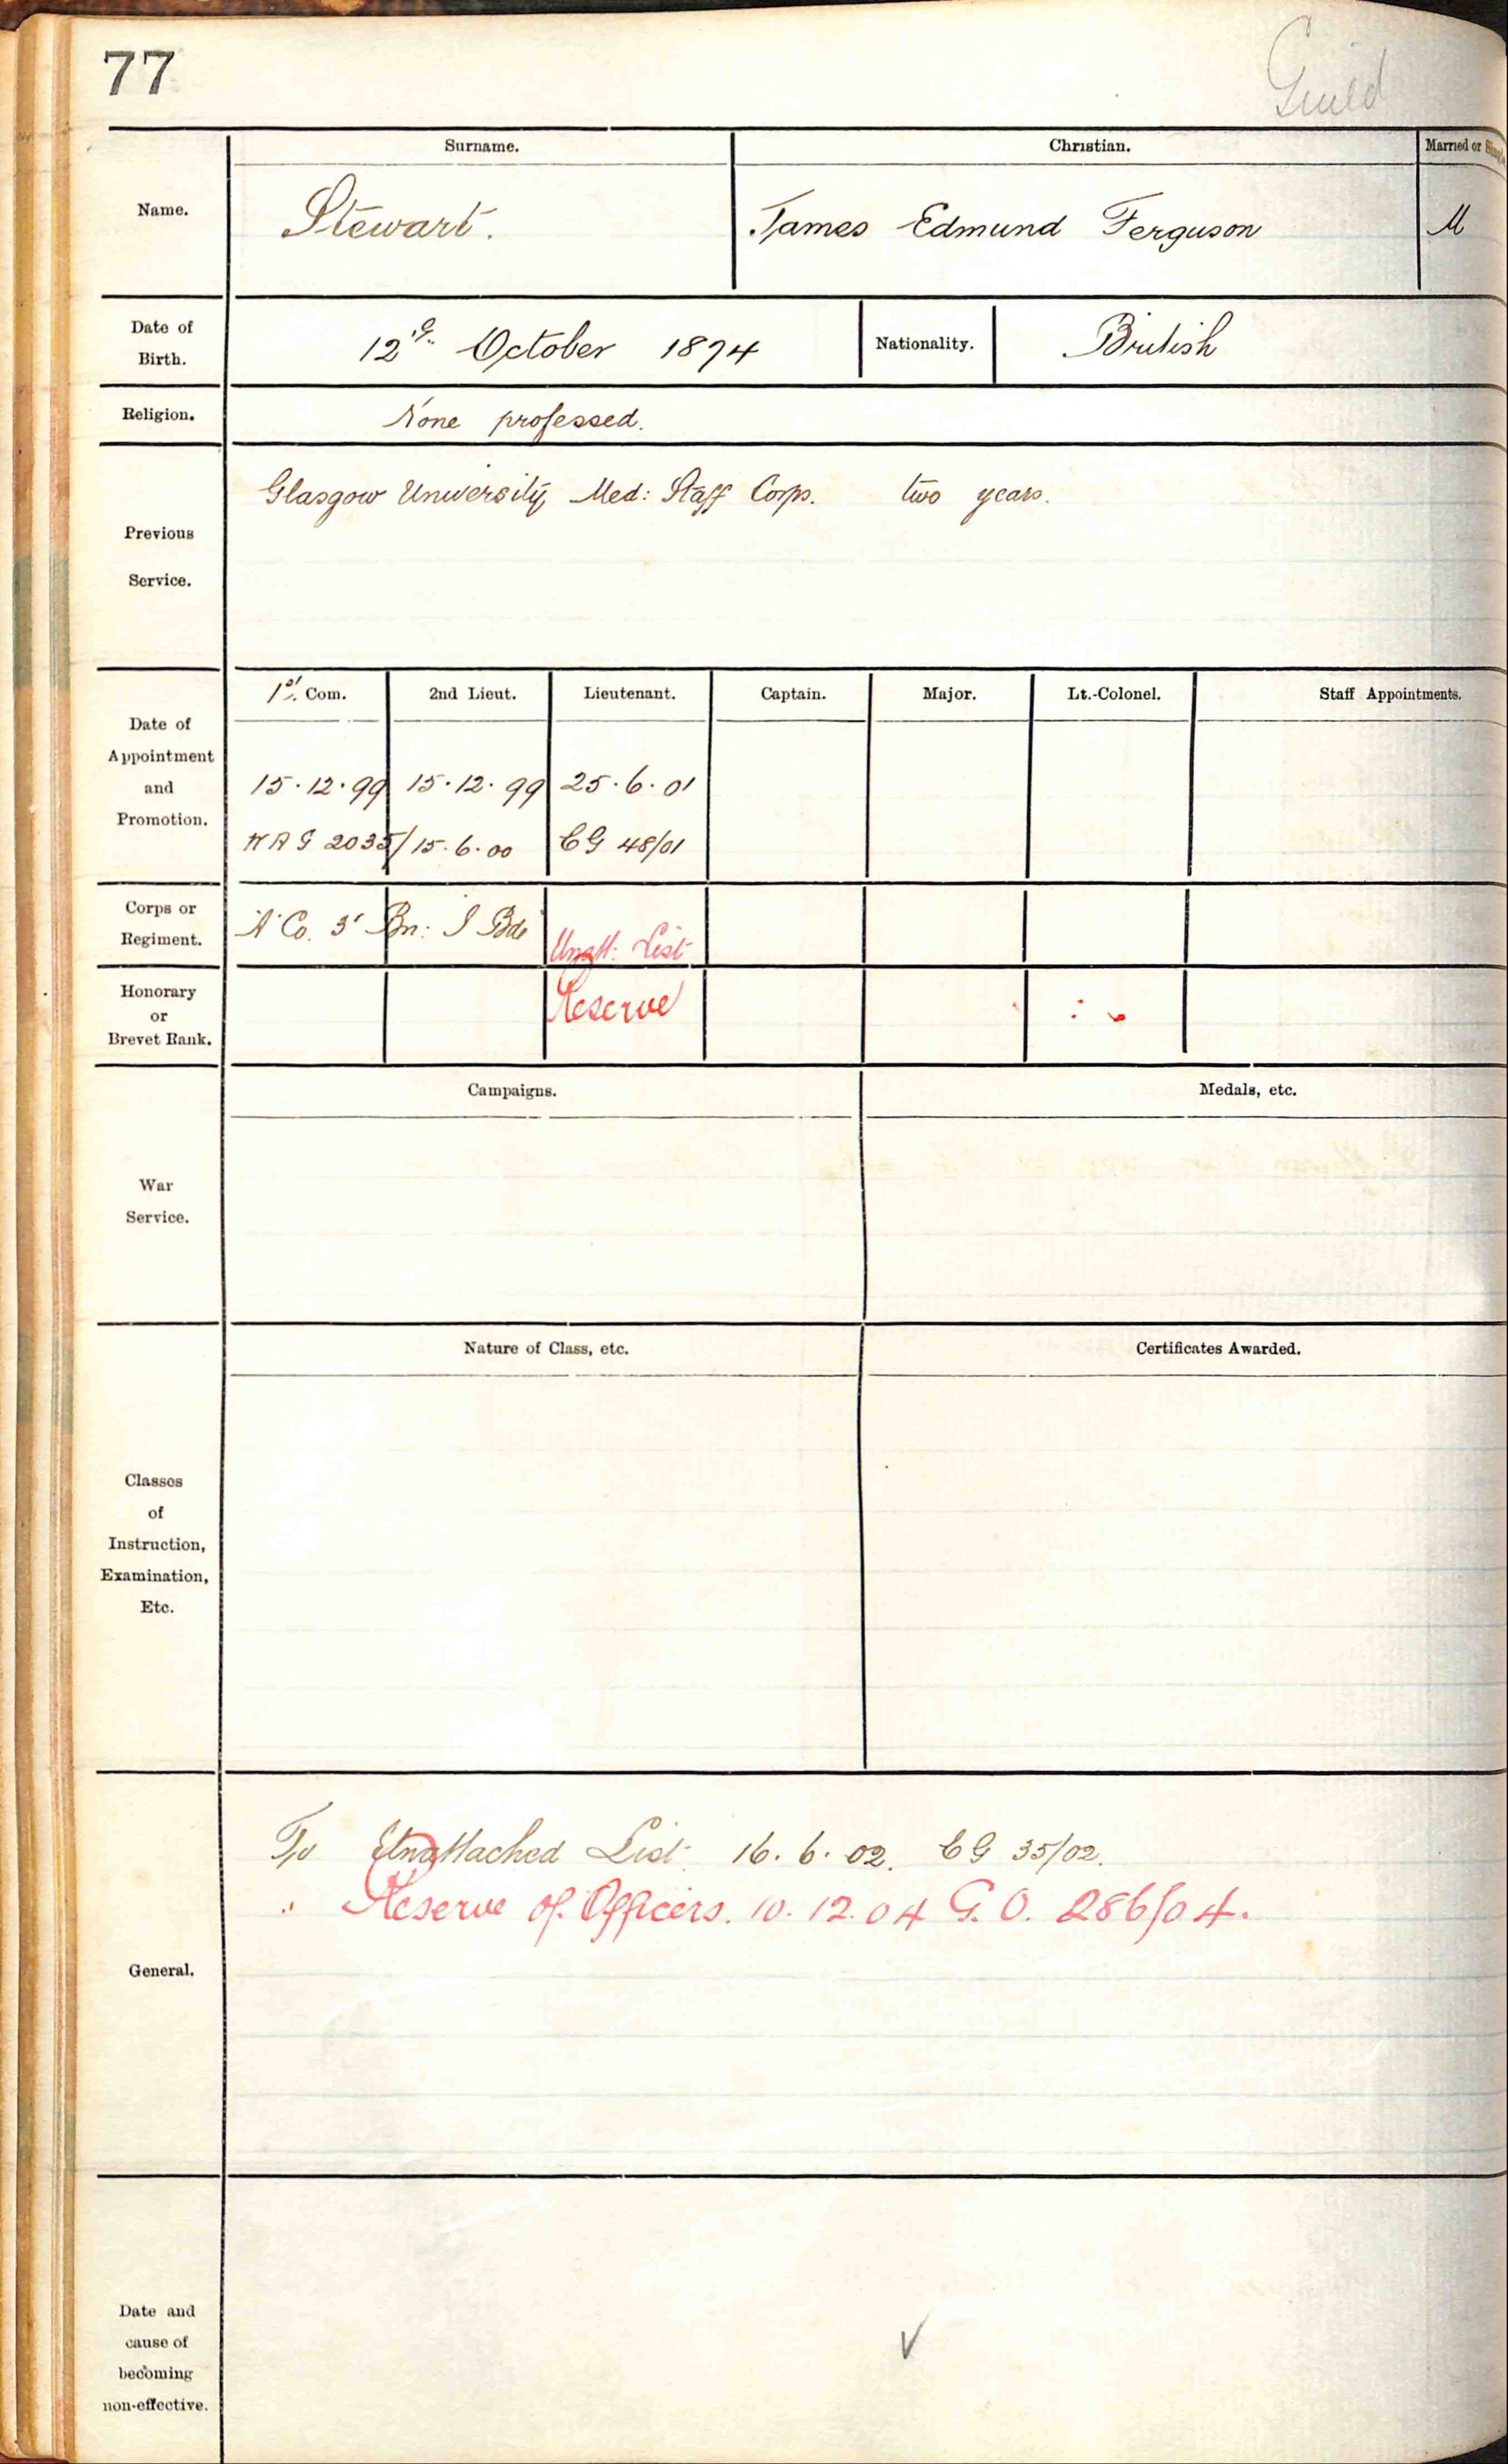 77
Guild
Surname.
Christian.
Married or Single
Name.
Stewart.
James Edmund Ferguson
M
Date of
Birth.
12th October 1874
Nationality.
British
Religion.
None professed.
Previous
Service.
Glasgow University Med: Staff Corps. two years.
Date of
Appointment
and
Promotion.
1st. Com.
2nd Lieut.
Lieutenant.
Captain.
Major.
Lt.-Colonel.
Staff Appointments.
15.12.99
15.12.99
25.6.01
2035/15.6.00
CG 48/01
Corps or
Regiment.
A Co. 3' Bn: I Bde
Unatt: List
Honorary
or
Brevet Rank.
Reserve
War
Service.
Campaigns.
Medals, etc.
Classes
of
Instruction,
Examination,
Etc.
Nature of Class, etc.
Certificates Awarded.
General.
To Unattached List. 16.6.02. CG 35/02.
" Reserve of Officers. 10.12.04 G.O. 286/04.
Date and
cause of
becoming
non-effective.